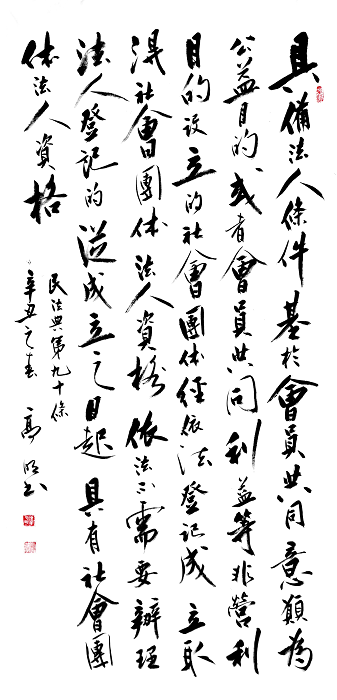 具備法人條件基於會員共同意願為
公益目的或者會員共同利益等非營利
目的設立的社會團体經依法登記成立取
得社會團体法人資格依法不需要辦理
法人登記的從成立之日起具有社會團
体法人資格
民法典第九十條
辛丑之春 高书